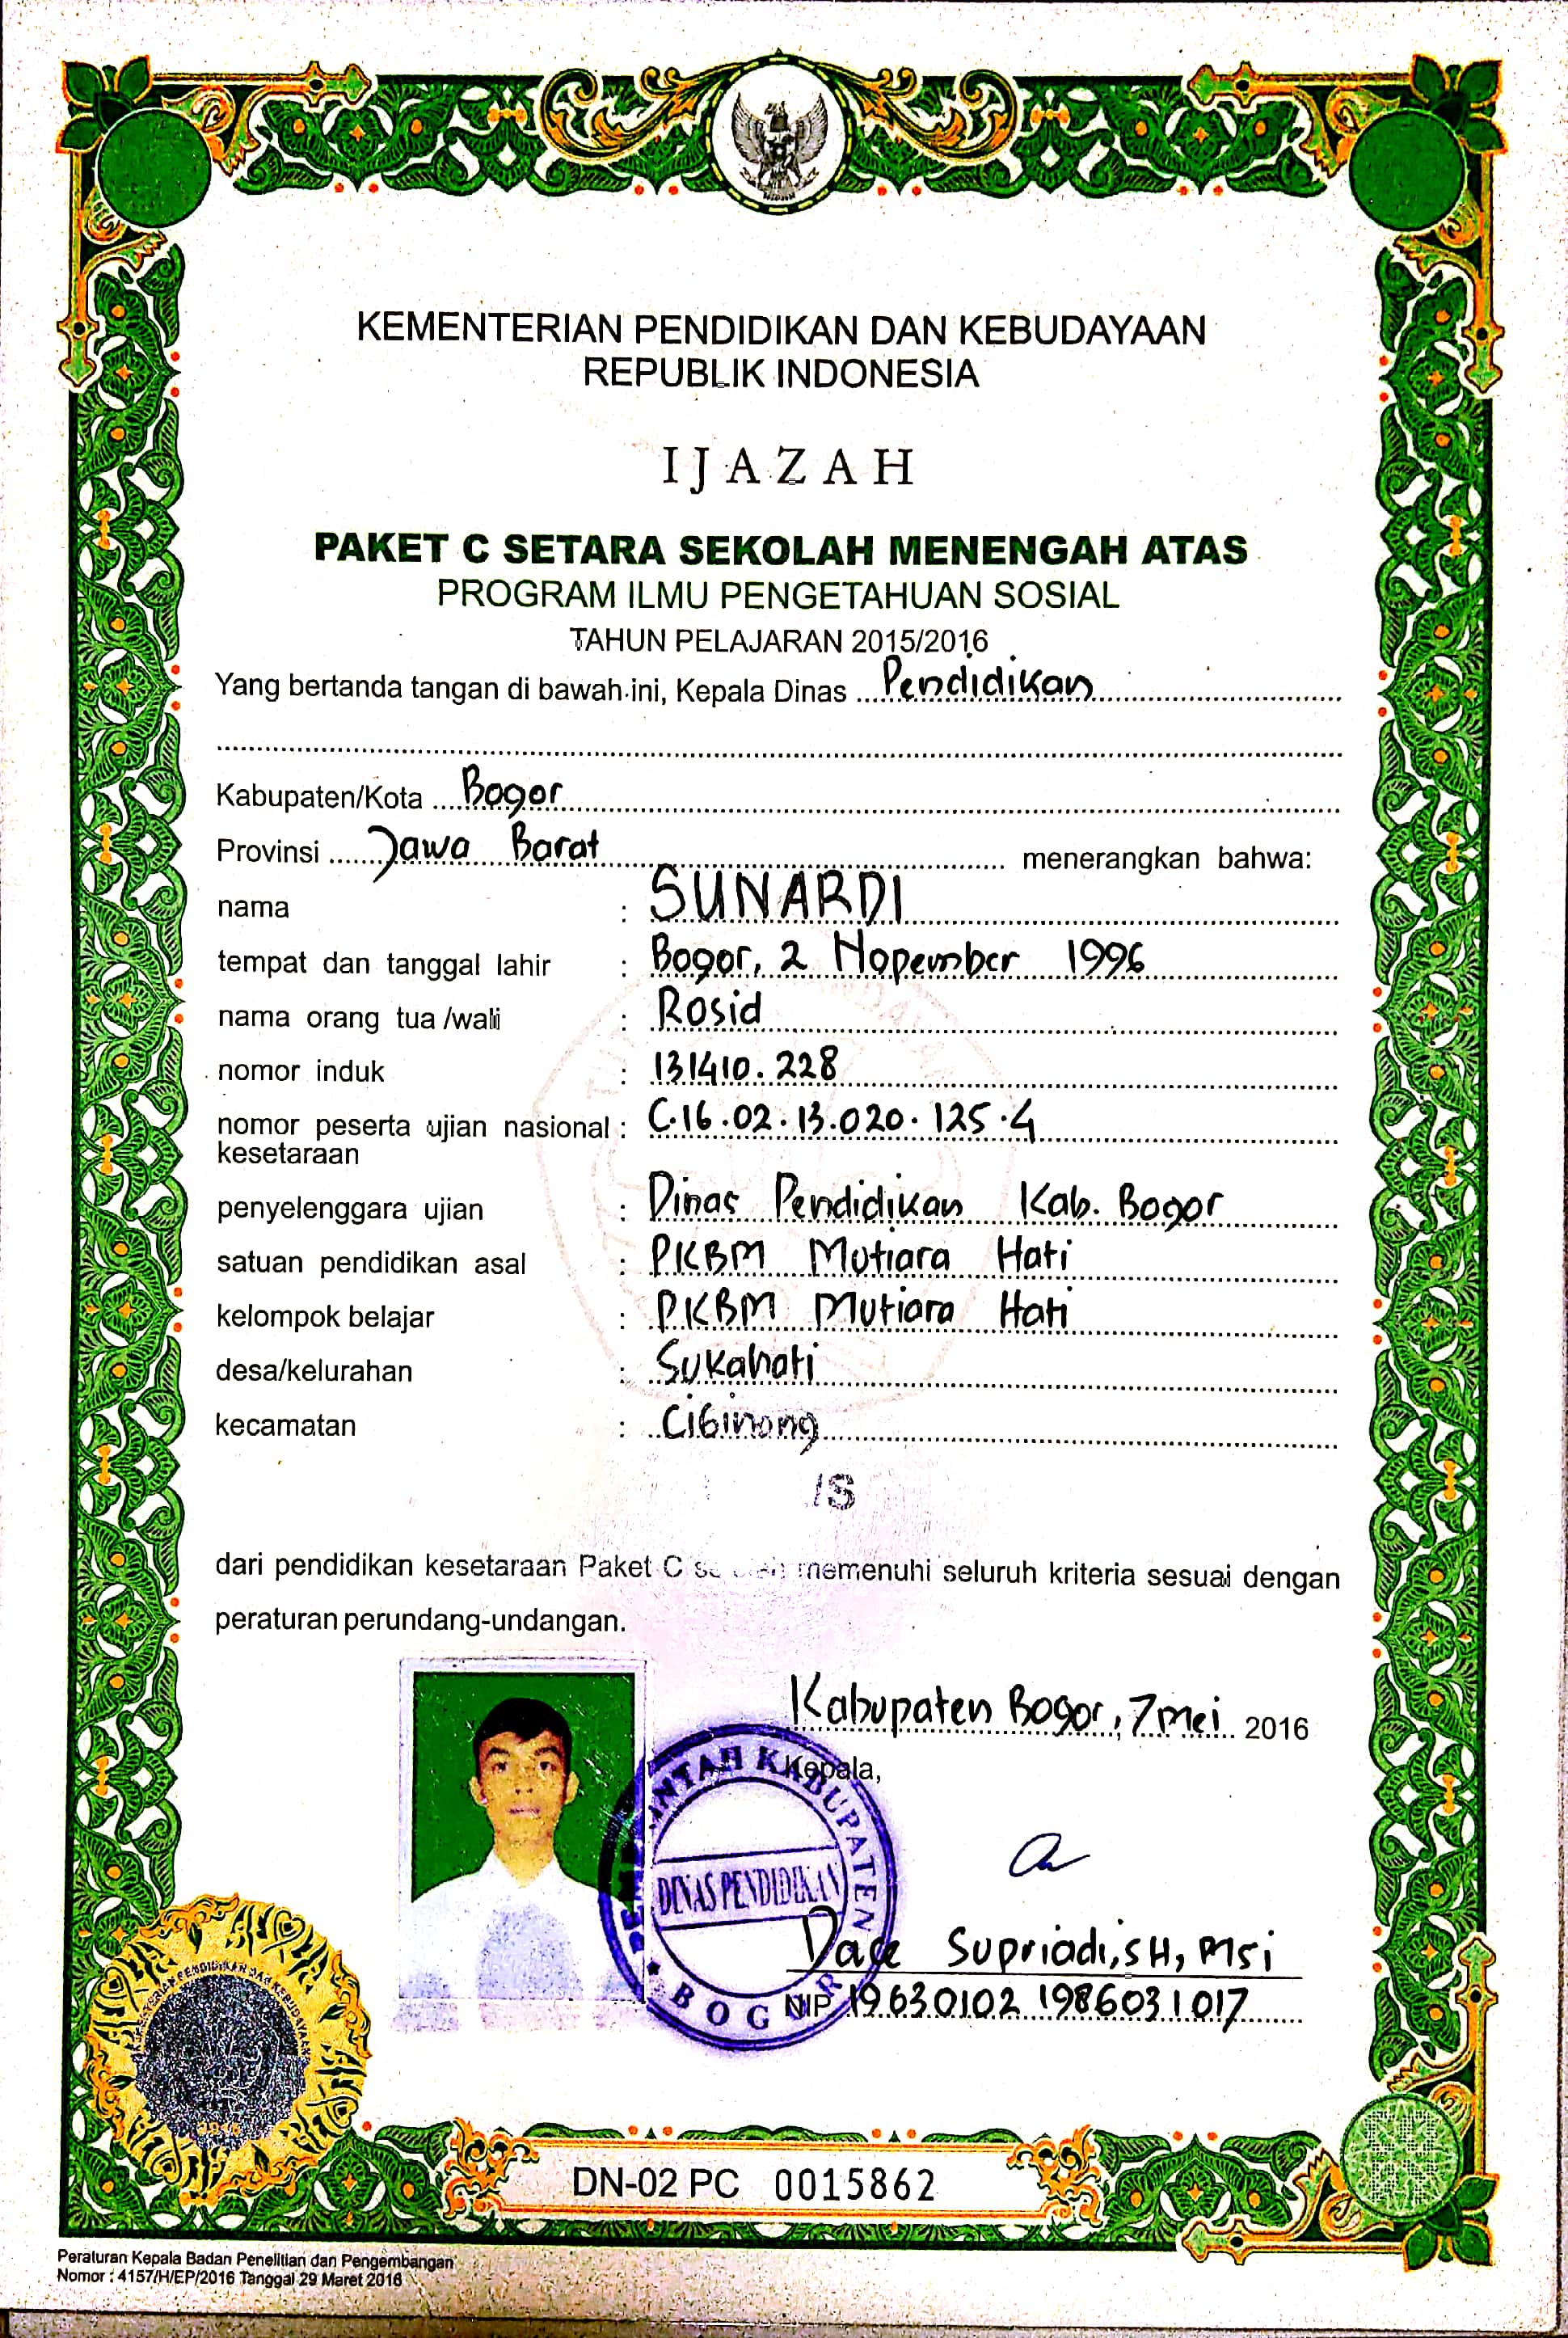 KEMENTERIAN PENDIDIKAN DAN KEBUDAYAAN
REPUBLIK INDONESIA
IJAZAH
PAKET C SETARA SEKOLAH MENENGAH ATAS
PROGRAM ILMU PENGETAHUAN SOSIAL
TAHUN PELAJARAN 2015/2016
Yang bertanda tangan di bawah ini, Kepala Dinas Pendidikan
Kabupaten/Kota Bogor
Provinsi Jawa Barat menerangkan bahwa:
nama : SUNARDI
tempat dan tanggal lahir : Bogor, 2 Nopember 1996
nama orang tua/wali : Rosid
nomor induk : 131410.228
nomor peserta ujian nasional : C.16.02.13.020.125.4
kesetaraan
penyelenggara ujian : Dinas Pendidikan Kab. Bogor
satuan pendidikan asal : PKBM Mutiara Hati
kelompok belajar : PKBM Mutiara Hati
desa/kelurahan : Sukahati
kecamatan : Cibinong
dari pendidikan kesetaraan Paket C memenuhi seluruh kriteria sesuai dengan
peraturan perundang-undangan.
Kabupaten Bogor, 7 mei 2016
Kepala,
PEMERINTAH KABUPATEN
DINAS PENDIDIKAN
BOGOR
Dace Supriadi, SH, MSi
NIP 19630102 198603 1 017
DN-02 PC 0015862
Peraturan Kepala Badan Penelitian dan Pengembangan
Nomor : 4157/H/EP/2016 Tanggal 29 Maret 2016